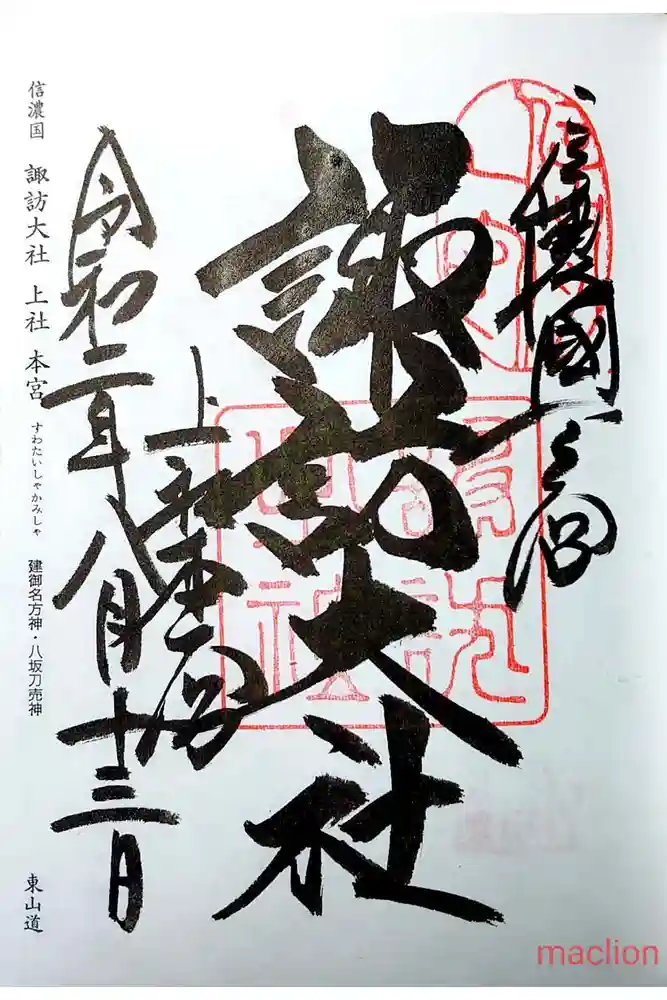 信濃國一之宮
諏訪大社
上社本宮
令和二年八月十三日
信濃国 諏訪大社 上社 本宮 すわたいしゃかみしゃ 建御名方神・八坂刀売神 東山道
諏訪大社
maclion